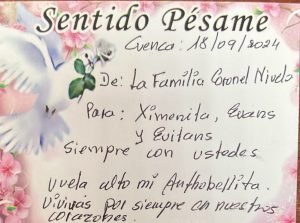 Sentido Pésame
Cuenca: 18/09/2024
De: La Familia Coronel Nivelo
Para: Ximenita, Evans
y Evitans
Siempre con ustedes
vuela alto mi Anthobellita.
Vivirás por siempre en nuestros
corazones.